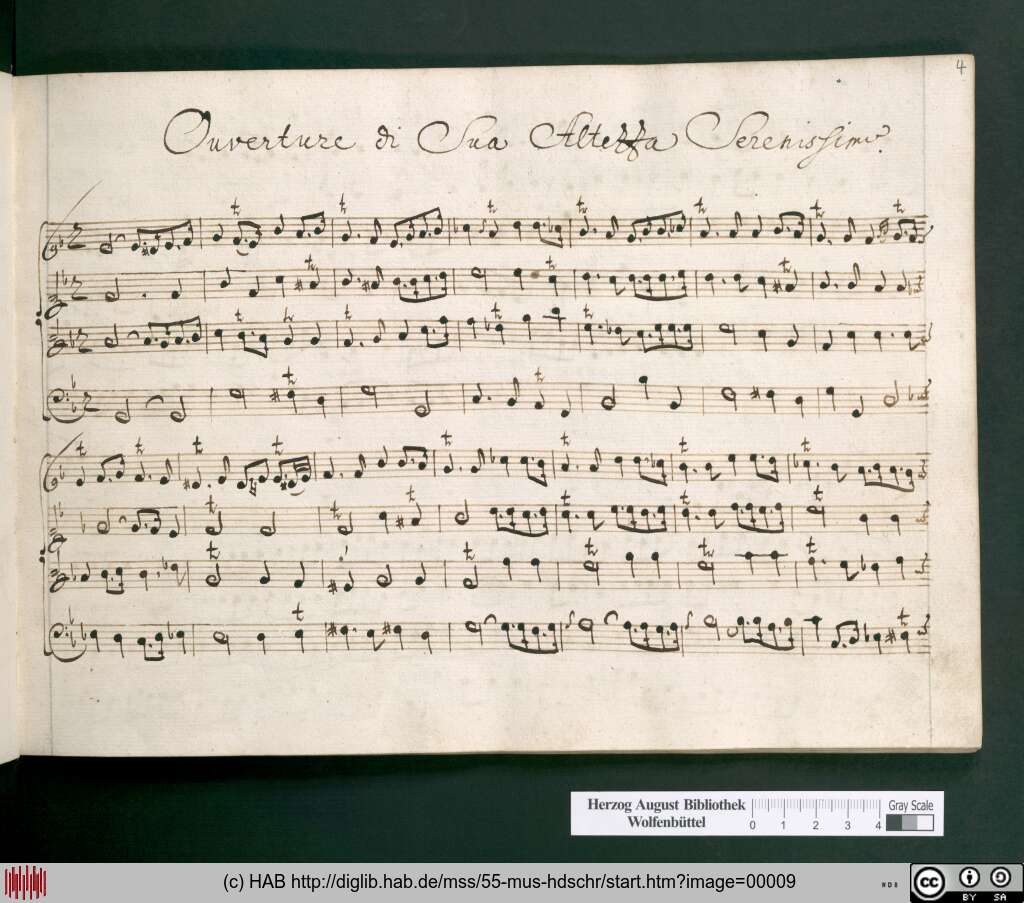 4
Ouverture di Sua Altezza Serenissima.
Herzog August Bibliothek
Wolfenbüttel
0 1 2 3 4
Gray Scale
(c) HAB http://diglib.hab.de/mss/55-mus-hdschr/start.htm?image=00009
cc BY SA